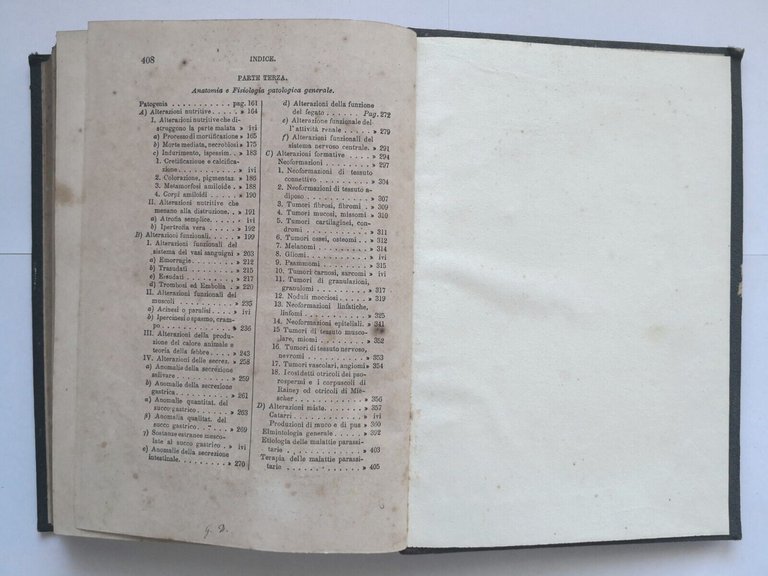 408 INDICE.
PARTE TERZA.
Anatomia e Fisiologia patologica generale.
Patogenia . . . . . . . . . . . pag. 161
A) Alterazioni nutritive . . . . . » 164
I. Alterazioni nutritive che di-
struggono la parte malata » ivi
a) Processo di mortificazione » 165
b) Morte mediata, necrobiosi » 175
c) Indurimento, ispessim. . » 183
1. Cretificazione e calcifica-
zione . . . . . . . . . . » ivi
2. Colorazione, pigmentaz. » 186
3. Metamorfosi amiloide . » 188
4. Corpi amiloidi . . . . » 190
II. Alterazioni nutritive che
menano alla distruzione. . » 191
a) Atrofia semplice. . . . » ivi
b) Ipertrofia vera . . . . » 192
B) Alterazioni funzionali. . . . » 199
I. Alterazioni funzionali del
sistema dei vasi sanguigni » 203
a) Emorragie . . . . . . » 212
b) Trasudati . . . . . . » 215
c) Essudati . . . . . . . » 217
d) Trombosi ed Embolia . » 220
II. Alterazioni funzionali dei
muscoli . . . . . . . . . » 235
a) Acinesi o paralisi . . . » ivi
b) Ipercinesi o spasmo, cram-
po . . . . . . . . . . . » 236
III. Alterazioni della produzio-
ne del calore animale e
teoria della febbre . . . . » 243
IV. Alterazioni delle secrez. » 258
a) Anomalie della secrezione
salivare . . . . . . . . » 259
b) Anomalie della secrezione
gastrica . . . . . . . . » 261
α) Anomalie quantitat. del
succo gastrico . . . . . » 263
β) Anomalia qualitat. del
succo gastrico . . . . . » 269
γ) Sostanze estranee mesco-
late al succo gastrico . . » ivi
c) Anomalie della secrezione
intestinale. . . . . . . . » 270
d) Alterazioni della funzione
del fegato . . . . . Pag. 272
e) Alterazione funzionale del-
l'attività renale . . . . » 279
f) Alterazioni funzionali del
sistema nervoso centrale. » 291
C) Alterazioni formative . . . . » 294
Neoformazioni . . . . . . . » 297
1. Neoformazioni di tessuto
connettivo . . . . . . . » 304
2. Neoformazioni di tessuto a-
diposo . . . . . . . . . » 307
3. Tumori fibrosi, fibromi . » 309
4. Tumori mucosi, missomi . » 310
5. Tumori cartilaginei, con-
dromi . . . . . . . . . » 311
6. Tumori ossei, osteomi . . » 312
7. Melanomi . . . . . . . » 314
8. Gliomi . . . . . . . . » ivi
9. Psammomi . . . . . . . » 315
10. Tumori carnosi, sarcomi » ivi
11. Tumori di granulazioni,
granulomi . . . . . . . » 317
12. Noduli mocciosi . . . . » 319
13. Neoformazioni linfatiche,
linfomi . . . . . . . . » 325
14. Neoformazioni epiteliali. » 341
15 Tumori di tessuto musco-
lare, miomi . . . . . . » 352
16. Tumori di tessuto nervoso,
nevromi . . . . . . . . » 353
17. Tumori vascolari, angiomi » 354
18. I cosidetti otricoli dei pso-
rospermi e i corpuscoli di
Rainey od otricoli di Mie-
scher . . . . . . . . . » 356
D) Alterazioni miste. . . . . . » 357
Catarri . . . . . . . . . . » ivi
Produzioni di muco e di pus » 360
Elmintologia generale . . . . » 392
Etiologia delle malattie paras-
sitarie . . . . . . . . . . » 403
Terapia delle malattie parassi-
tarie . . . . . . . . . . . » 405